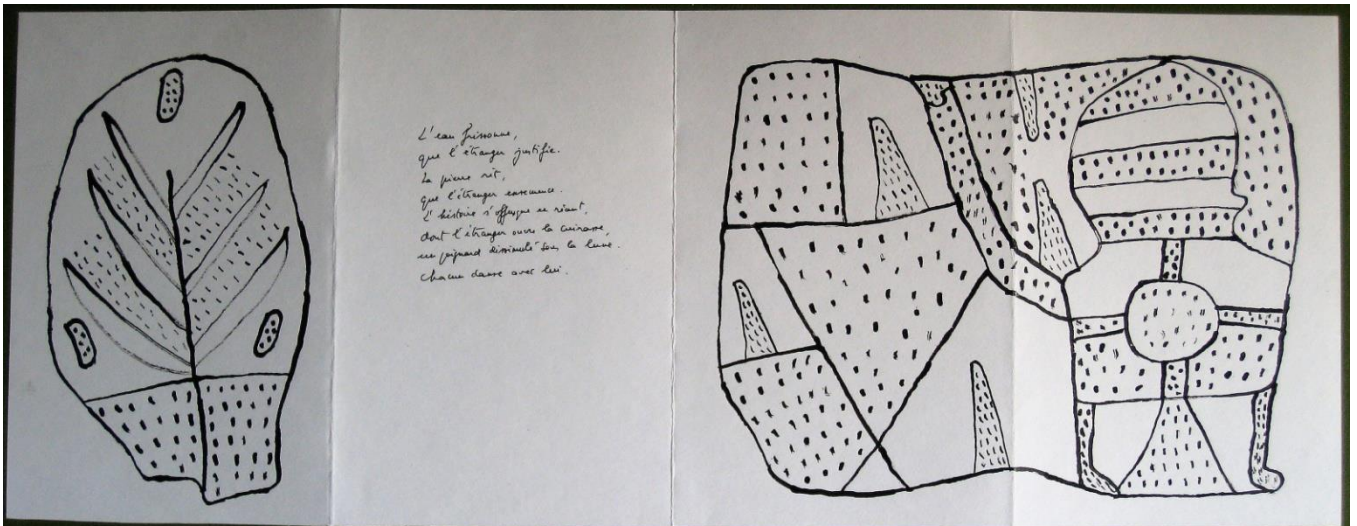 L'eau frissonne,
que l'étranger justifie.
La pierre rit,
que l'étranger ensemence.
L'histoire s'offusque en riant,
dont l'étranger ouvre la cuirasse,
un poignard dissimulé sous la lune.
chacun danse avec lui.